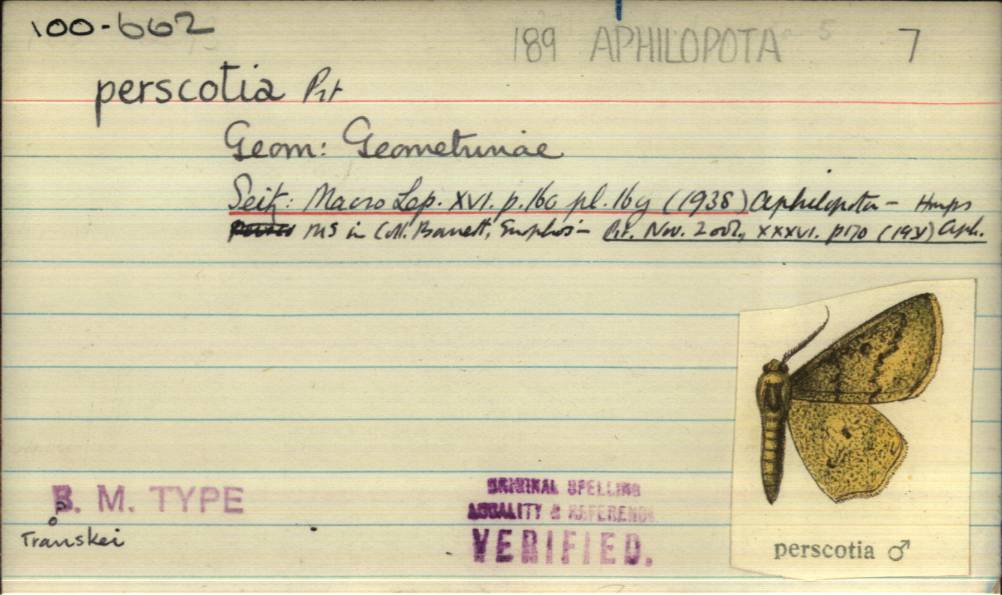 100-662
189 APHILOPOTA 7
perscotia Prt
Geom: Geometrinae
Seitz: Macro Lep. XVI. p. 160 pl. 16g (1938) Aphilopota - Hmps
MS in Coll. Barrett, - Prt. Nov. Zool., XXXVI. p170 (1931) Aph.
B. M. TYPE
♂
Transkei
ORIGINAL SPELLING
LOCALITY & REFERENCE
VERIFIED.
perscotia ♂